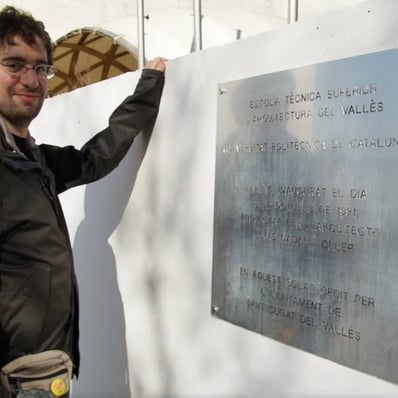 ESCOLA TÈCNICA SUPERIOR
D'ARQUITECTURA DEL VALLÈS
UNIVERSITAT POLITÈCNICA DE CATALUN
INAUGURAT EL DIA
DE 1991,
PER L'ARQUITECTE
OLLER
EN AQUEST SOLAR CEDIT PER
L'AJUNTAMENT DE
SANT CUGAT DEL VALLÈS